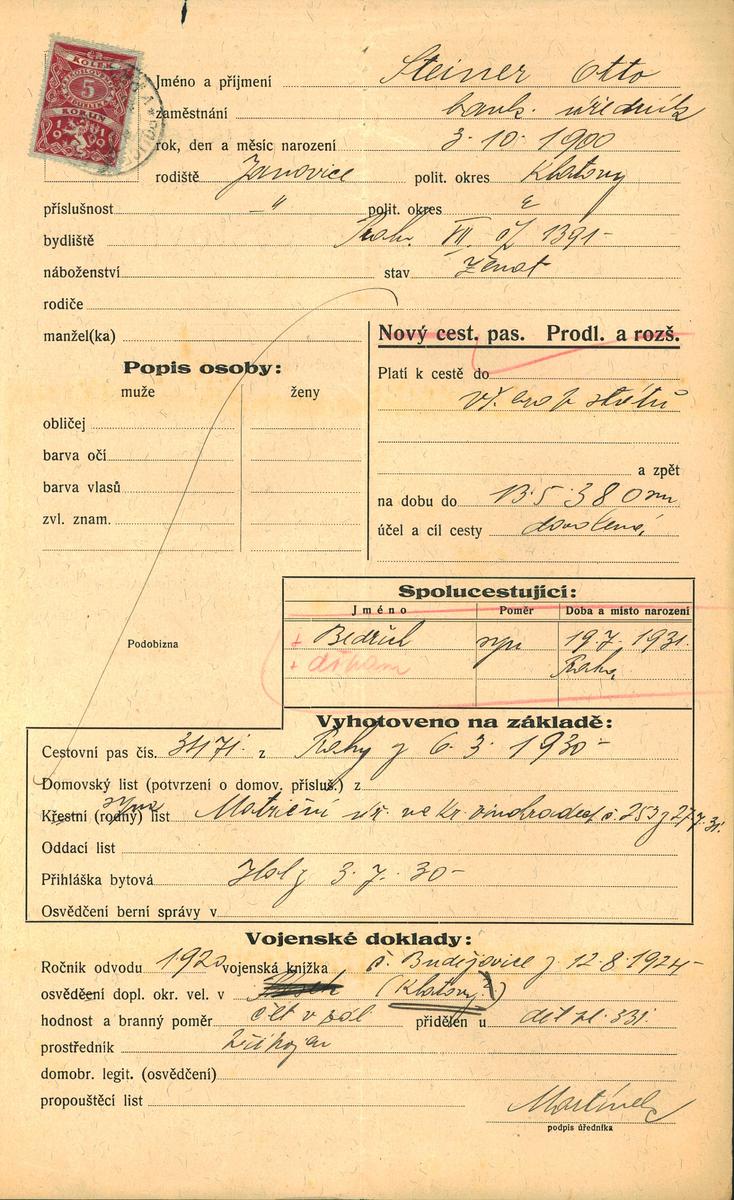 KOLEK
5
KORUN
Jméno a příjmení Steiner Otto
zaměstnání bank. úředník
rok, den a měsíc narození 3. 10. 1900
rodiště Janovice polit. okres Klatovy
příslušnost -"- polit. okres "
bydliště Praha VII. 1391-
náboženství stav ženat
rodiče
manžel(ka)
Nový cest. pas. Prodl. a rozš.
Popis osoby:
muže ženy
Platí k cestě do
států
obličej
barva očí
a zpět
barva vlasů
na dobu do 13. 5. 38
zvl. znam.
účel a cíl cesty dovolená
Spolucestující:
Jméno Poměr Doba a místo narození
+ Bedřich syn 19.7. 1931.
+ Praha
Podobizna
Vyhotoveno na základě:
Cestovní pas čís. 31171. z Prahy z 6. 3. 1930-
Domovský list (potvrzení o domov. přísluš.) z
syna
Křestní (rodný) list Matriční úř. ve Kr. Vinohradech č. 253 z 27.7.31.
Oddací list
Přihláška bytová z 3. 7. 30-
Osvědčení berní správy v
Vojenské doklady:
Ročník odvodu 1920 vojenská knížka č. Budějovice z 12. 8. 1924-
osvědčení dopl. okr. vel. v (Klatovy)
hodnost a branný poměr čet v zál přidělen u děl pl. 331.
prostředník
domobr. legit. (osvědčení)
propouštěcí list
Martínek
podpis úředníka